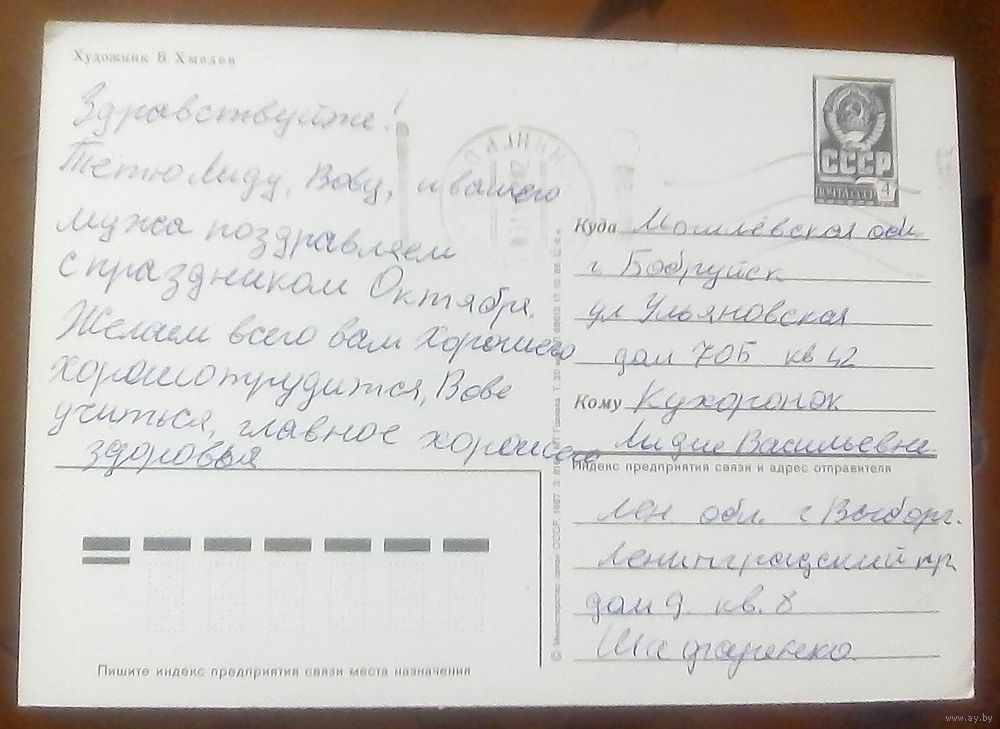 Художник В. Хмелев
Здравствуйте!
Тётю Лиду, Вову, и вашего
мужа поздравляем
с праздником Октября.
Желаем всего вам хорошего
хорошо трудится, Вове
учиться, главное хорошего
здоровья
СССР
ПОЧТА СССР
4
Куда Могилёвская обл.
г Бобруйск
ул Ульяновская
дом 70Б кв 42
Кому Кухоронок
Лидие Васильевне.
Индекс предприятия связи и адрес отправителя
Лен. обл. г Выборг.
Ленинградский пр
дом 9. кв. 8
Шафаренко
Пишите индекс предприятия связи места назначения
© Министерство связи СССР. 1987.
www.ay.by